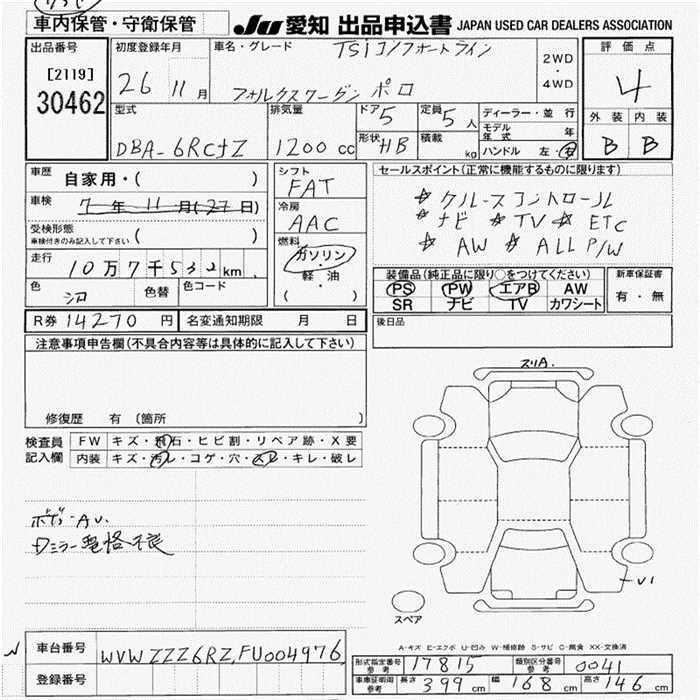 車内保管・守衛保管
JU 愛知 出品申込書 JAPAN USED CAR DEALERS ASSOCIATION
出品番号
[2119]
30462
初度登録年月
26 11月
車名・グレード
TSiコンフォートライン
フォルクスワーゲン ポロ
2WD
・
4WD
評価点
4
外装 内装
B B
型式
DBA-6RCJZ
排気量
1200 cc
ドア 5
形状 HB
定員 5人
積載 kg
ディーラー・並行
モデル年式 年
ハンドル 左・右
車歴 自家用・( )
車検 7年11月(27日)
受検形態
車検付きのみ記入して下さい ( )
走行 10万7千532km
色 シロ 色替 色コード
R券 14270円 名変通知期限 月 日
シフト
FAT
冷房
AAC
燃料
ガソリン
・
軽・油
( )
セールスポイント(正常に機能するものに限ります)
☆クルーズコントロール
☆ナビ ☆TV ☆ETC
☆AW ☆ALL P/W
装備品(純正品に限り○をつけてください)
PS PW エアB AW
SR ナビ TV カワシート
新車保証書
有・無
後日品
注意事項申告欄(不具合内容等は具体的に記入して下さい)
修復歴 有 (箇所 )
検査員記入欄
FW キズ・飛石・ヒビ割・リペア跡・X要
内装 キズ・汚レ・コゲ・穴・スレ・キレ・破レ
ボデーAU.
Dミラー電格不良
スリA.
U1
スペア
A-キズ E-エクボ U-凹み W-補修跡 S-サビ C-腐食 XX-交換済
車台番号 WVWZZZ6RZ,FU004976
登録番号
形式指定番号 参考 17815 類別区分番号 参考 0041
車庫証明用 参考 長さ 399cm 幅 168cm 高さ 146cm